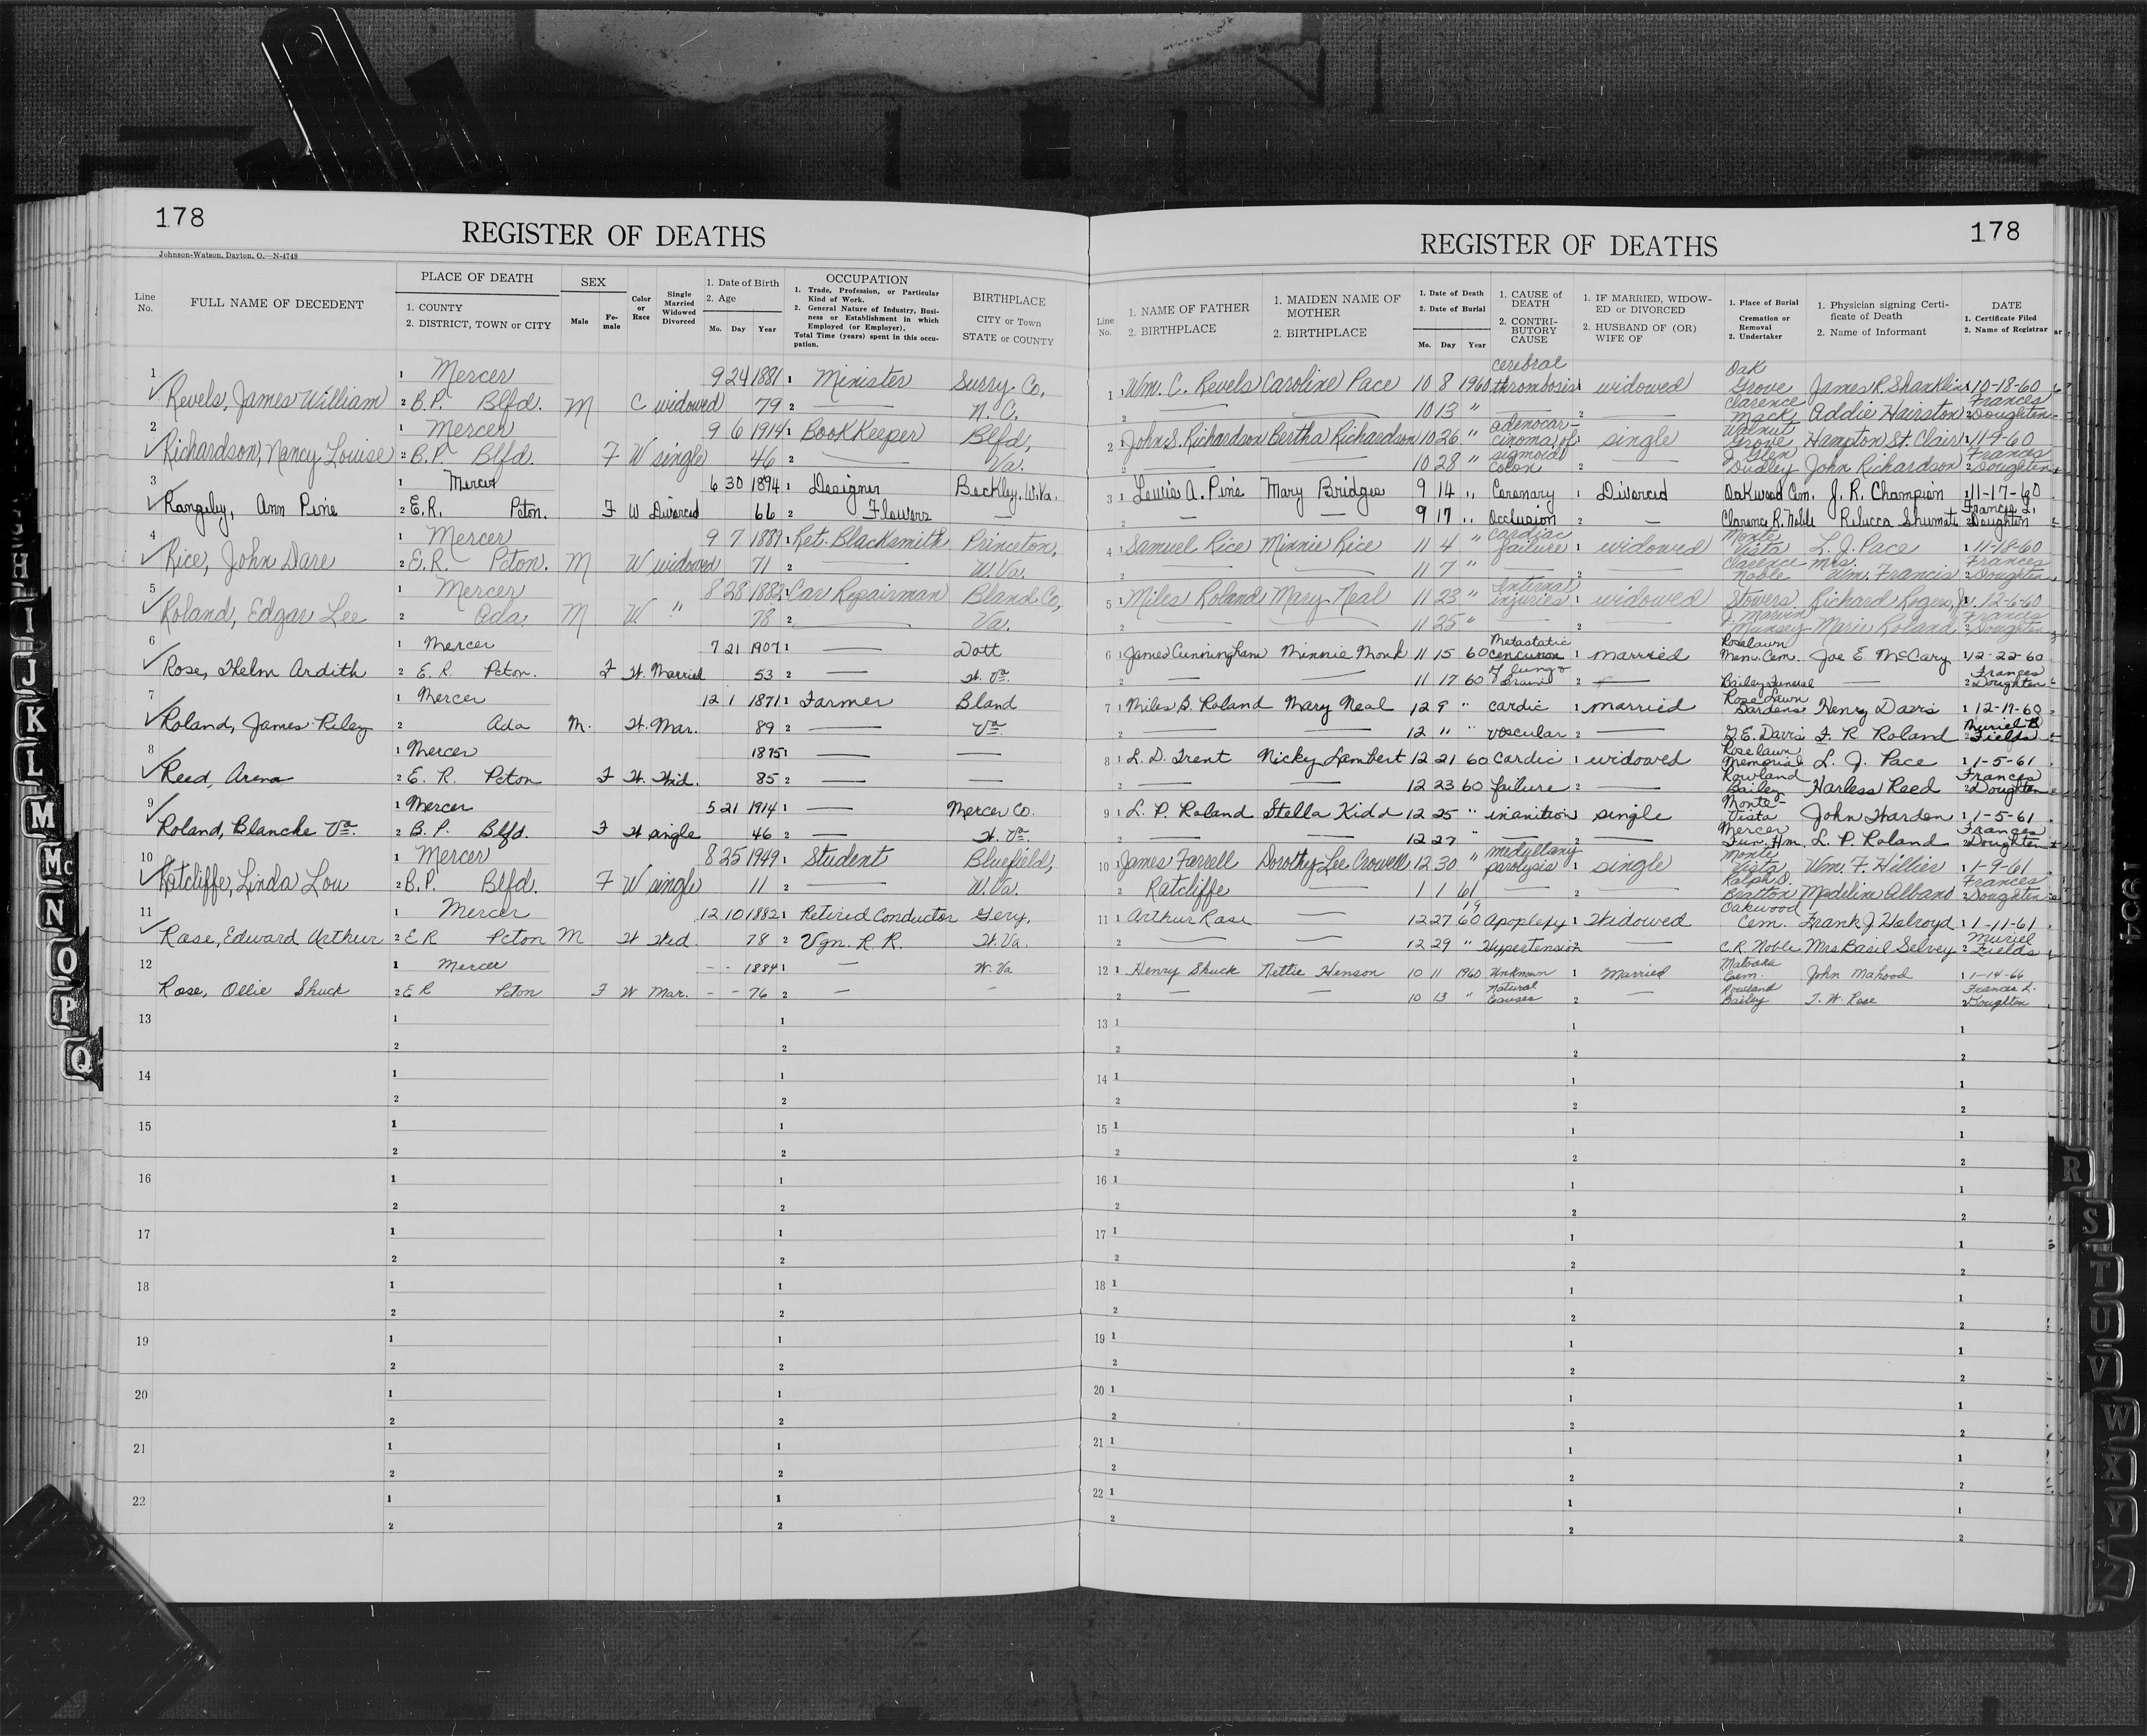 178
REGISTER OF DEATHS
Johnson-Watson, Dayton, O.—N-4748
Line No.
FULL NAME OF DECEDENT
PLACE OF DEATH
1. COUNTY
2. DISTRICT, TOWN or CITY
SEX
Male
Female
Color or Race
Single Married Widowed Divorced
1. Date of Birth
2. Age
Mo. Day Year
OCCUPATION
1. Trade, Profession, or Particular Kind of Work.
2. General Nature of Industry, Business or Establishment in which Employed (or Employer).
Total Time (years) spent in this occupation.
BIRTHPLACE
CITY or Town
STATE or COUNTY
1 1 Mercer 9 24 1881 1 Minister Surry Co,
Revels, James William 2 B.P. Blfd. M C widowed 79 2 — N.C.
2 1 Mercer 9 6 1914 1 BookKeeper Blfd,
Richardson, Nancy Louise 2 B.P. Blfd. F W single 46 2 — Va.
3 1 Mercer 6 30 1894 1 Designer Beckley, W.Va.
Rangeley, Ann Pine 2 E.R. Pcton. F W Divorced 66 2 Flowers —
4 1 Mercer 9 7 1889 1 Ret. Blacksmith Princeton,
Rice, John Dare 2 E.R. Pcton. M W widowed 71 2 — W.Va.
5 1 Mercer 8 28 1882 1 Car Repairman Bland Co,
Roland, Edgar Lee 2 Ada M W " 78 2 — Va.
6 1 Mercer 7 21 1907 1 — Dott
Rose, Thelm Ardith 2 E.R. Pcton. F W. Married 53 2 — W. Va.
7 1 Mercer 12 1 1871 1 Farmer Bland
Roland, James Riley 2 Ada M. W. Mar. 89 2 — Va
8 1 Mercer 1875 1 — —
Reed, Arena 2 E. R. Pcton F W. Wid. 85 2 — —
9 1 Mercer 5 21 1914 1 — Mercer Co.
Roland, Blanche Va. 2 B.P. Blfd. F W single 46 2 — W. Va.
10 1 Mercer 8 25 1949 1 Student Bluefield,
Ratcliffe, Linda Lou 2 B.P. Blfd. F W single 11 2 — W.Va.
11 1 Mercer 12 10 1882 1 Retired Conductor Gery,
Rose, Edward Arthur 2 E R Pcton M W Wid. 78 2 Vgn. R. R. W. Va.
12 1 Mercer - - 1884 1 — W. Va
Rose, Ollie Shuck 2 E R Pcton F W Mar. - - 76 2 — —
13 1 1
2 2
14 1 1
2 2
15 1 1
2 2
16 1 1
2 2
17 1 1
2 2
18 1 1
2 2
19 1 1
2 2
20 1 1
2 2
21 1 1
2 2
22 1 1
2 2
178
REGISTER OF DEATHS
Line No.
1. NAME OF FATHER
2. BIRTHPLACE
1. MAIDEN NAME OF MOTHER
2. BIRTHPLACE
1. Date of Death
2. Date of Burial
Mo. Day Year
1. CAUSE of DEATH
2. CONTRIBUTORY CAUSE
1. IF MARRIED, WIDOWED or DIVORCED
2. HUSBAND OF (OR) WIFE OF
1. Place of Burial Cremation or Removal
2. Undertaker
1. Physician signing Certificate of Death
2. Name of Informant
DATE
1. Certificate Filed
2. Name of Registrar
1 1 Wm. C. Revels Caroline Pace 10 8 1960 cerebral thrombosis 1 widowed Oak Grove James R. Shanklin 1 10-18-60
2 — — 10 13 " — 2 — Clarence Mack Addie Hairston 2 Frances Doughten
2 1 John S. Richardson Bertha Richardson 10 26 " adenocarcinoma of 1 single Walnut Grove Hampton St. Clair 1 11-9-60
2 — — 10 28 " sigmoid colon 2 — J. Glen Dudley John Richardson 2 Frances Doughten
3 1 Lewis A. Pine Mary Bridges 9 14 " Coronary 1 Divorced Oakwood Cem. J. R. Champion 1 11-17-60
2 — — 9 17 " Occlusion 2 — Clarence R. Noble Rebecca Shumate 2 Frances L. Doughten
4 1 Samuel Rice Minnie Rice 11 4 " Cardiac failure 1 widowed Monte Vista L. J. Pace 1 11-18-60
2 — — 11 7 " 2 Clarence Noble Mrs. Wm. Francis 2 Frances Doughten
5 1 Miles Roland Mary Neal 11 23 " Internal injuries 1 widowed Stowers Richard Rogers, Jr. 12-6-60
2 — — 11 25 " — 2 — J. Marvin Munsey Marie Roland 2 Frances Doughten
6 1 James Cunningham Minnie Monk 11 15 60 Metastatic 1 married Roselawn Mem. Cem. Joe E. McCary 12-22-60
2 — — 11 17 60 of lung & Brain 2 — Bailey Funeral — 2 Frances Doughten
7 1 Miles B. Roland Mary Neal 12 9 " cardic 1 married Rose Lawn Gardens Henry Davis 1 12-17-60
2 — — 12 11 " voscular 2 — G. E. Davis F. R Roland 2 Muriel B Fields
8 1 L. D. Trent Nicky Lambert 12 21 60 cardic 1 widowed Roselawn Memorial L. J. Pace 1 1-5-61
2 — — 12 23 60 failure 2 — Rowland Bailey Harless Reed 2 Frances Doughten
9 1 L. P. Roland Stella Kidd 12 25 " inanition 1 single Monte-Vista John Harden 1 1-5-61
2 — — 12 27 " — 2 — Mercer Fun. Hm. L. P. Roland 2 Frances Doughten
10 1 James Farrell Dorothy Lee Crowell 12 30 " medullary paralysis 1 single Monte Vista Wm. F. Hillier 1 1-9-61
2 Ratcliffe — 1 1 61 — 2 — Ralph O. Bratton Madeline Albano 2 Frances Doughten
11 1 Arthur Rose — 12 27 1960 Apoplexy 1 Widowed Oakwood Cem. Frank J. Holroyd 1 1-11-61
2 — — 12 29 " Hypertension — C. R. Noble Mrs. Basil Selvey 2 Muriel Fields
12 1 Henry Shuck Nettie Henson 10 11 1960 Unknown 1 Married Matoaka Cem. John Mahood 1 1-14-66
2 — — 10 13 " Natural Causes 2 — Rowland Bailey T. W. Rose 2 Frances L. Doughten
13 1 1 1
2 2 2
14 1 1 1
2 2 2
15 1 1 1
2 2 2
16 1 1 1
2 2 2
17 1 1 1
2 2 2
18 1 1 1
2 2 2
19 1 1 1
2 2 2
20 1 1 1
2 2 2
21 1 1 1
2 2 2
22 1 1 1
2 2 2
H
I
J
K
L
M
Mc
N
O
P
Q
R
S
T
U
V
W
X
Y
Z